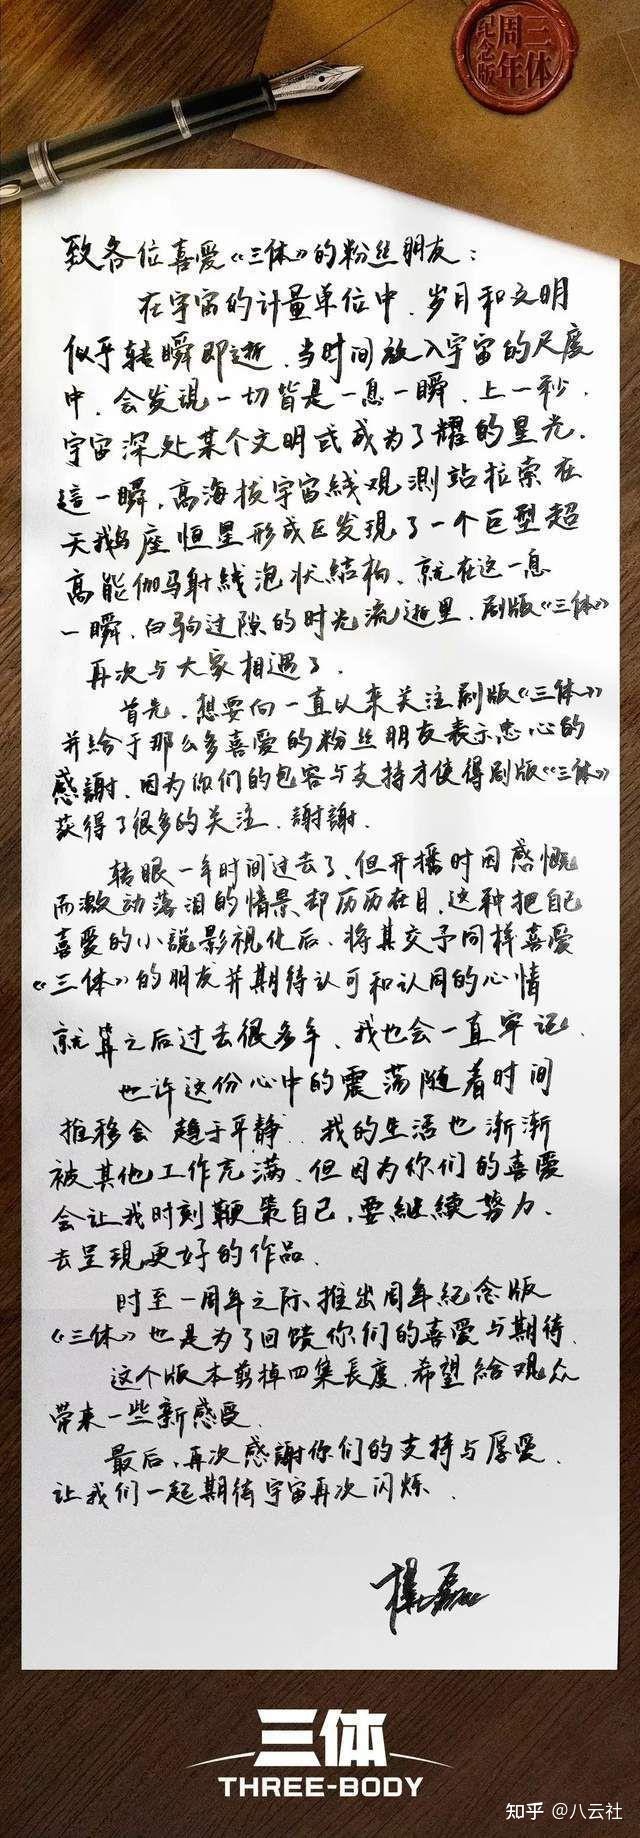 三体
周年
纪念版
致各位喜爱《三体》的粉丝朋友：
在宇宙的计量单位中，岁月和文明
似乎转瞬即逝，当时间放入宇宙的尺度
中，会发現一切皆是一息一瞬，上一秒，
宇宙深处某个文明或成为了耀的星光，
這一瞬，高海拔宇宙綫观測站拉索在
天鹅座恒星形成区发现了一个巨型超
高能伽马射綫泡状结构，就在这一息
一瞬，白驹过隙的时光流逝里，剧版《三体》
再次与大家相遇了．
首先，想要向一直以来关注剧版《三体》
并給于那么多喜爱的粉丝朋友表示忠心的
感謝，因为你们的包容与支持才使得剧版《三体》
获得了很多的关注，謝謝．
转眼一年时间过去了，但开播时因感慨
而激动落泪的情景却历历在目，这种把自己
喜爱的小說影视化后，将其交予同样喜爱
《三体》的朋友并期待认可和认同的心情
就算之后过去很多年，我也会一直牢记．
也许这份心中的震荡随着时间
推移会趋于平静，我的生活也渐渐
被其他工作充满，但因为你们的喜爱
会让我时刻鞭策自己，要継續努力，
去呈現更好的作品．
时至一周年之际推出周年紀念版
《三体》也是为了回馈你们的喜爱与期待，
这个版本剪掉四集長度，希望給观众
带来一些新感受．
最后，再次感謝你们的支持与厚爱，
让我们一起期待宇宙再次闪烁．
楊磊
三体
THREE-BODY
知乎 @八云社